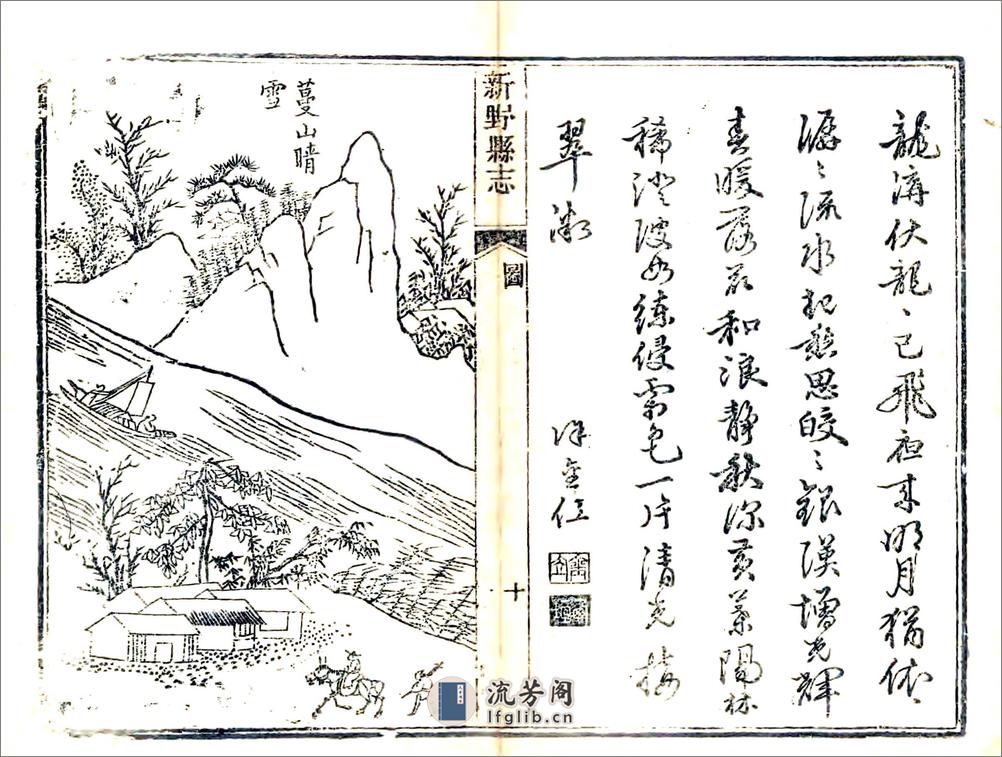 龍溝伏龍〻已飛夜來明月猶依〻
潺〻流水起愁思皎〻銀漢增光輝
春暖落花和浪靜秋深黃葉隔林
稀澄波如練侵霜色一片清光接
翠微
新野縣志
圖
十
蔓山晴
雪
流芳阁
lfglib.cn